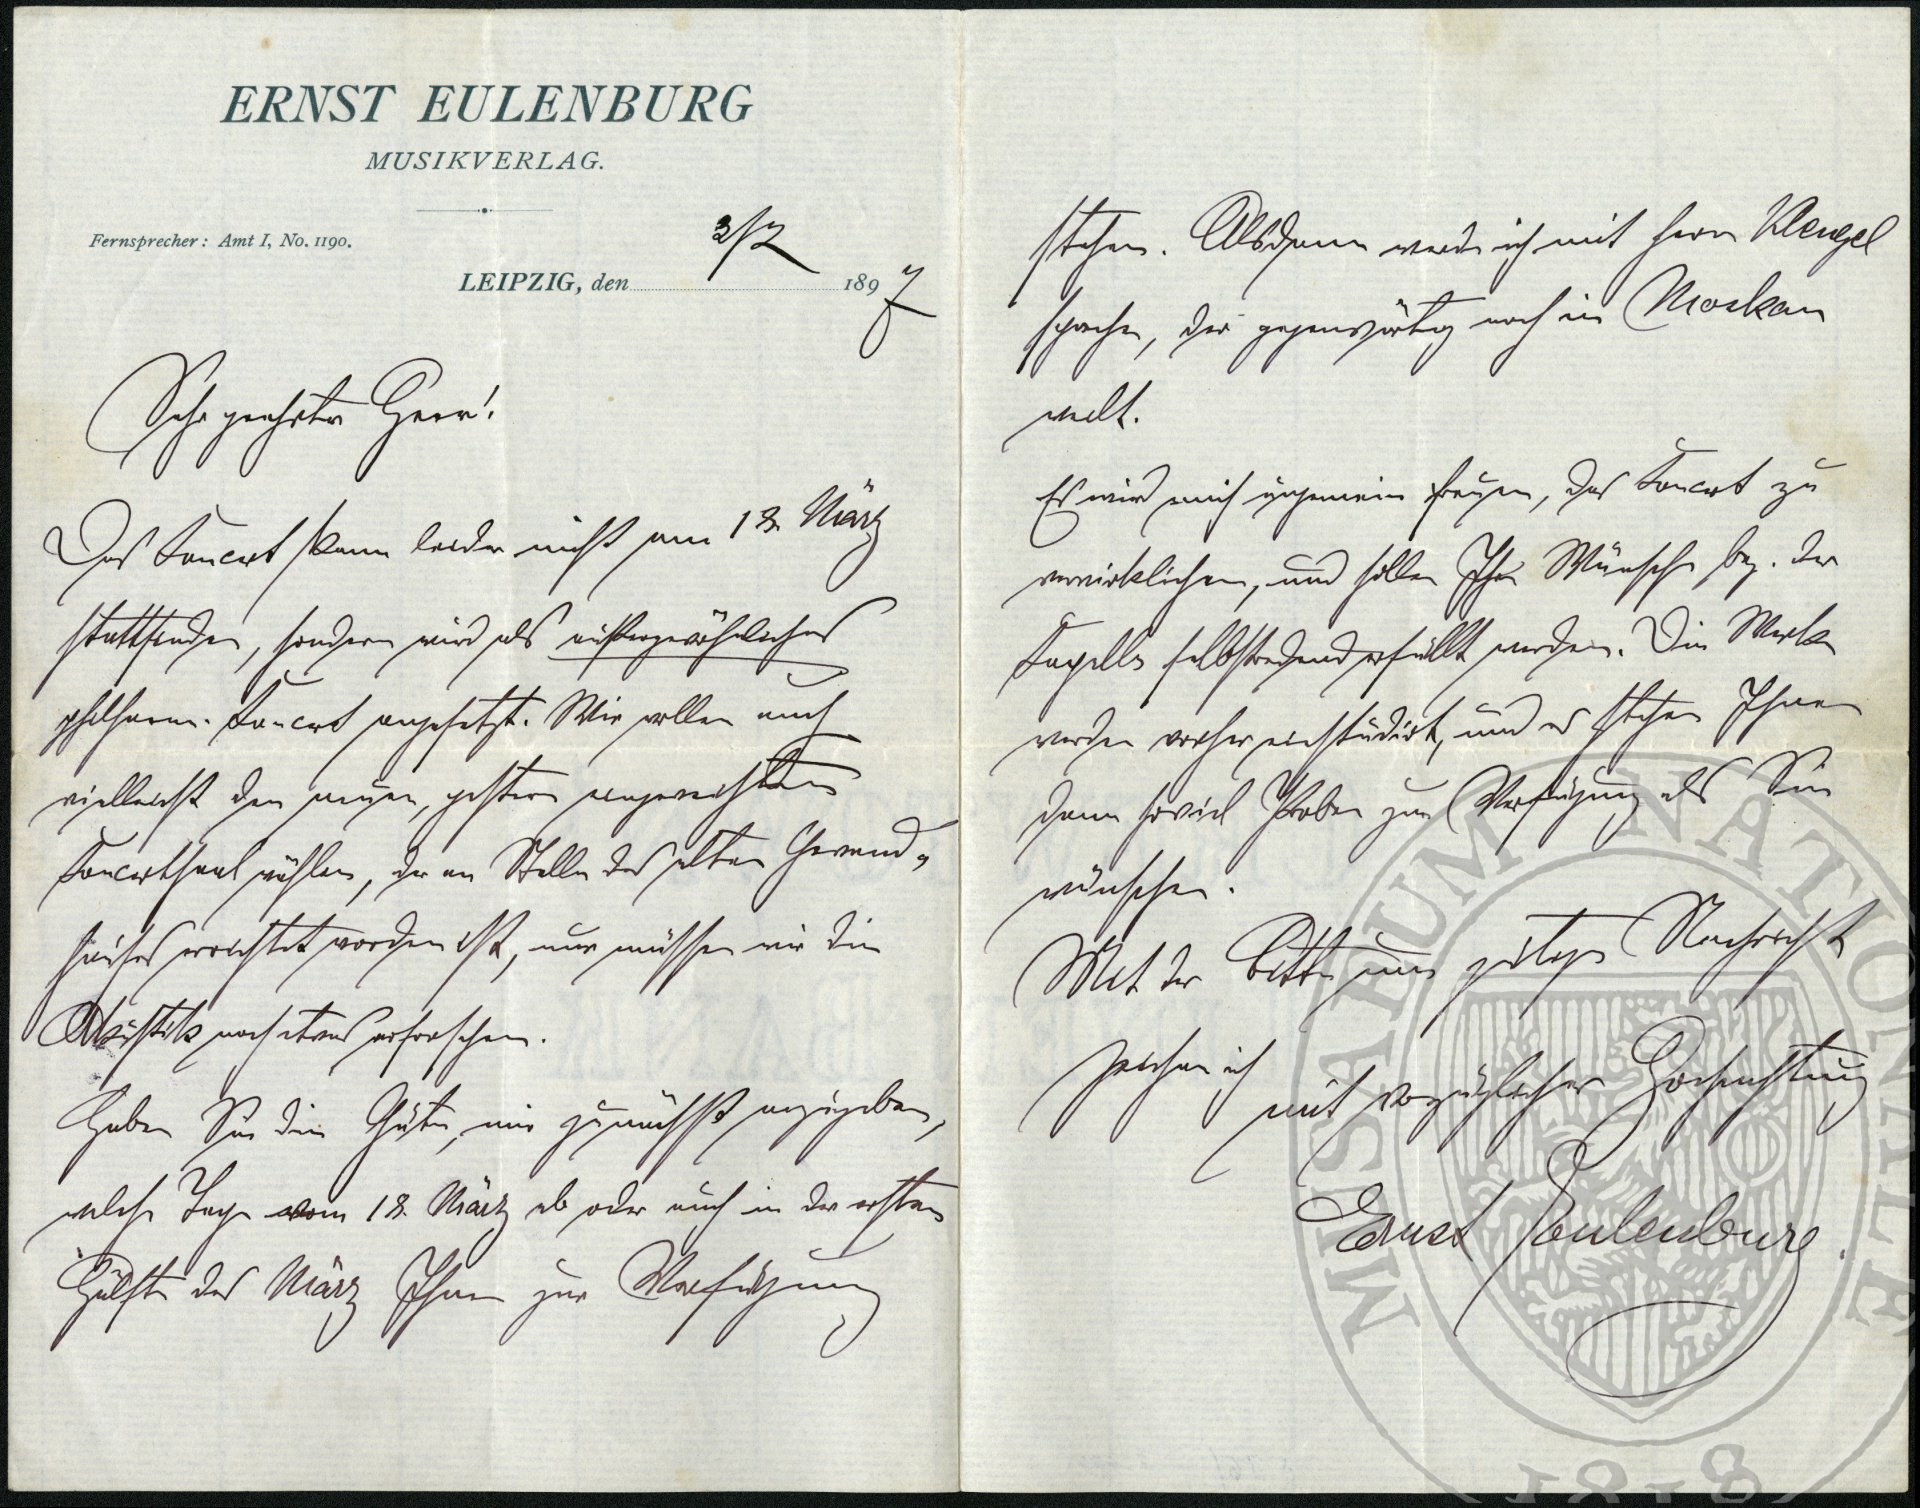 ERNST EULENBURG
MUSIKVERLAG.
Fernsprecher: Amt I, No. 1190.
3/2
LEIPZIG, den 1897
Sehr geehrter Herr!
Das Concert kann leider nicht am 18. März
stattfinden, sondern wird als außergewöhnliches
philharm. Concert angesetzt. Wir wollen auch
vielleicht den neuen, gestern eingeweihten
Concertsaal wählen, der an Stelle des alten Gewand-
hauses errichtet worden ist, nur müssen wir die
Akustik noch etwas erforschen.
Haben Sie die Güte, mir zunächst anzugeben,
welche Tage vom 18. März ab oder auch in der ersten
Hälfte des März Ihnen zur Verfügung
stehen. Alsdann werde ich mit Herrn Klengel
sprechen, der gegenwärtig noch in Moskau
weilt.
Es wird mich ungemein freuen, das Concert zu
verwirklichen, und sollen Ihre Wünsche bez. der
Capelle selbstredend erfüllt werden. Die Werke
werden vorher einstudirt, und es stehen Ihnen
dann soviel Proben zur Verfügung als Sie
wünschen.
Mit der Bitte um gütige Nachricht
zeichne ich
mit vorzüglicher Hochachtung
Ernst Eulenburg.
MUSAEUM NATIONALE
1818